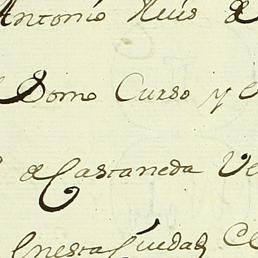 Antonio Ruis de
Como Curso y
de Castaneda Ve
enesta Ciudad